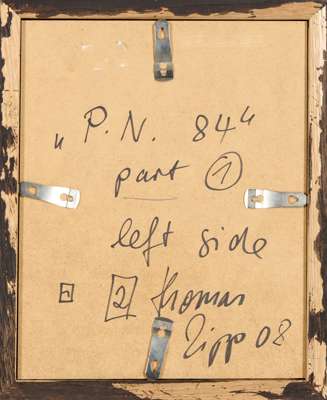 „P.N. 84“
part ①
left side
2 thomas
Zipp 08